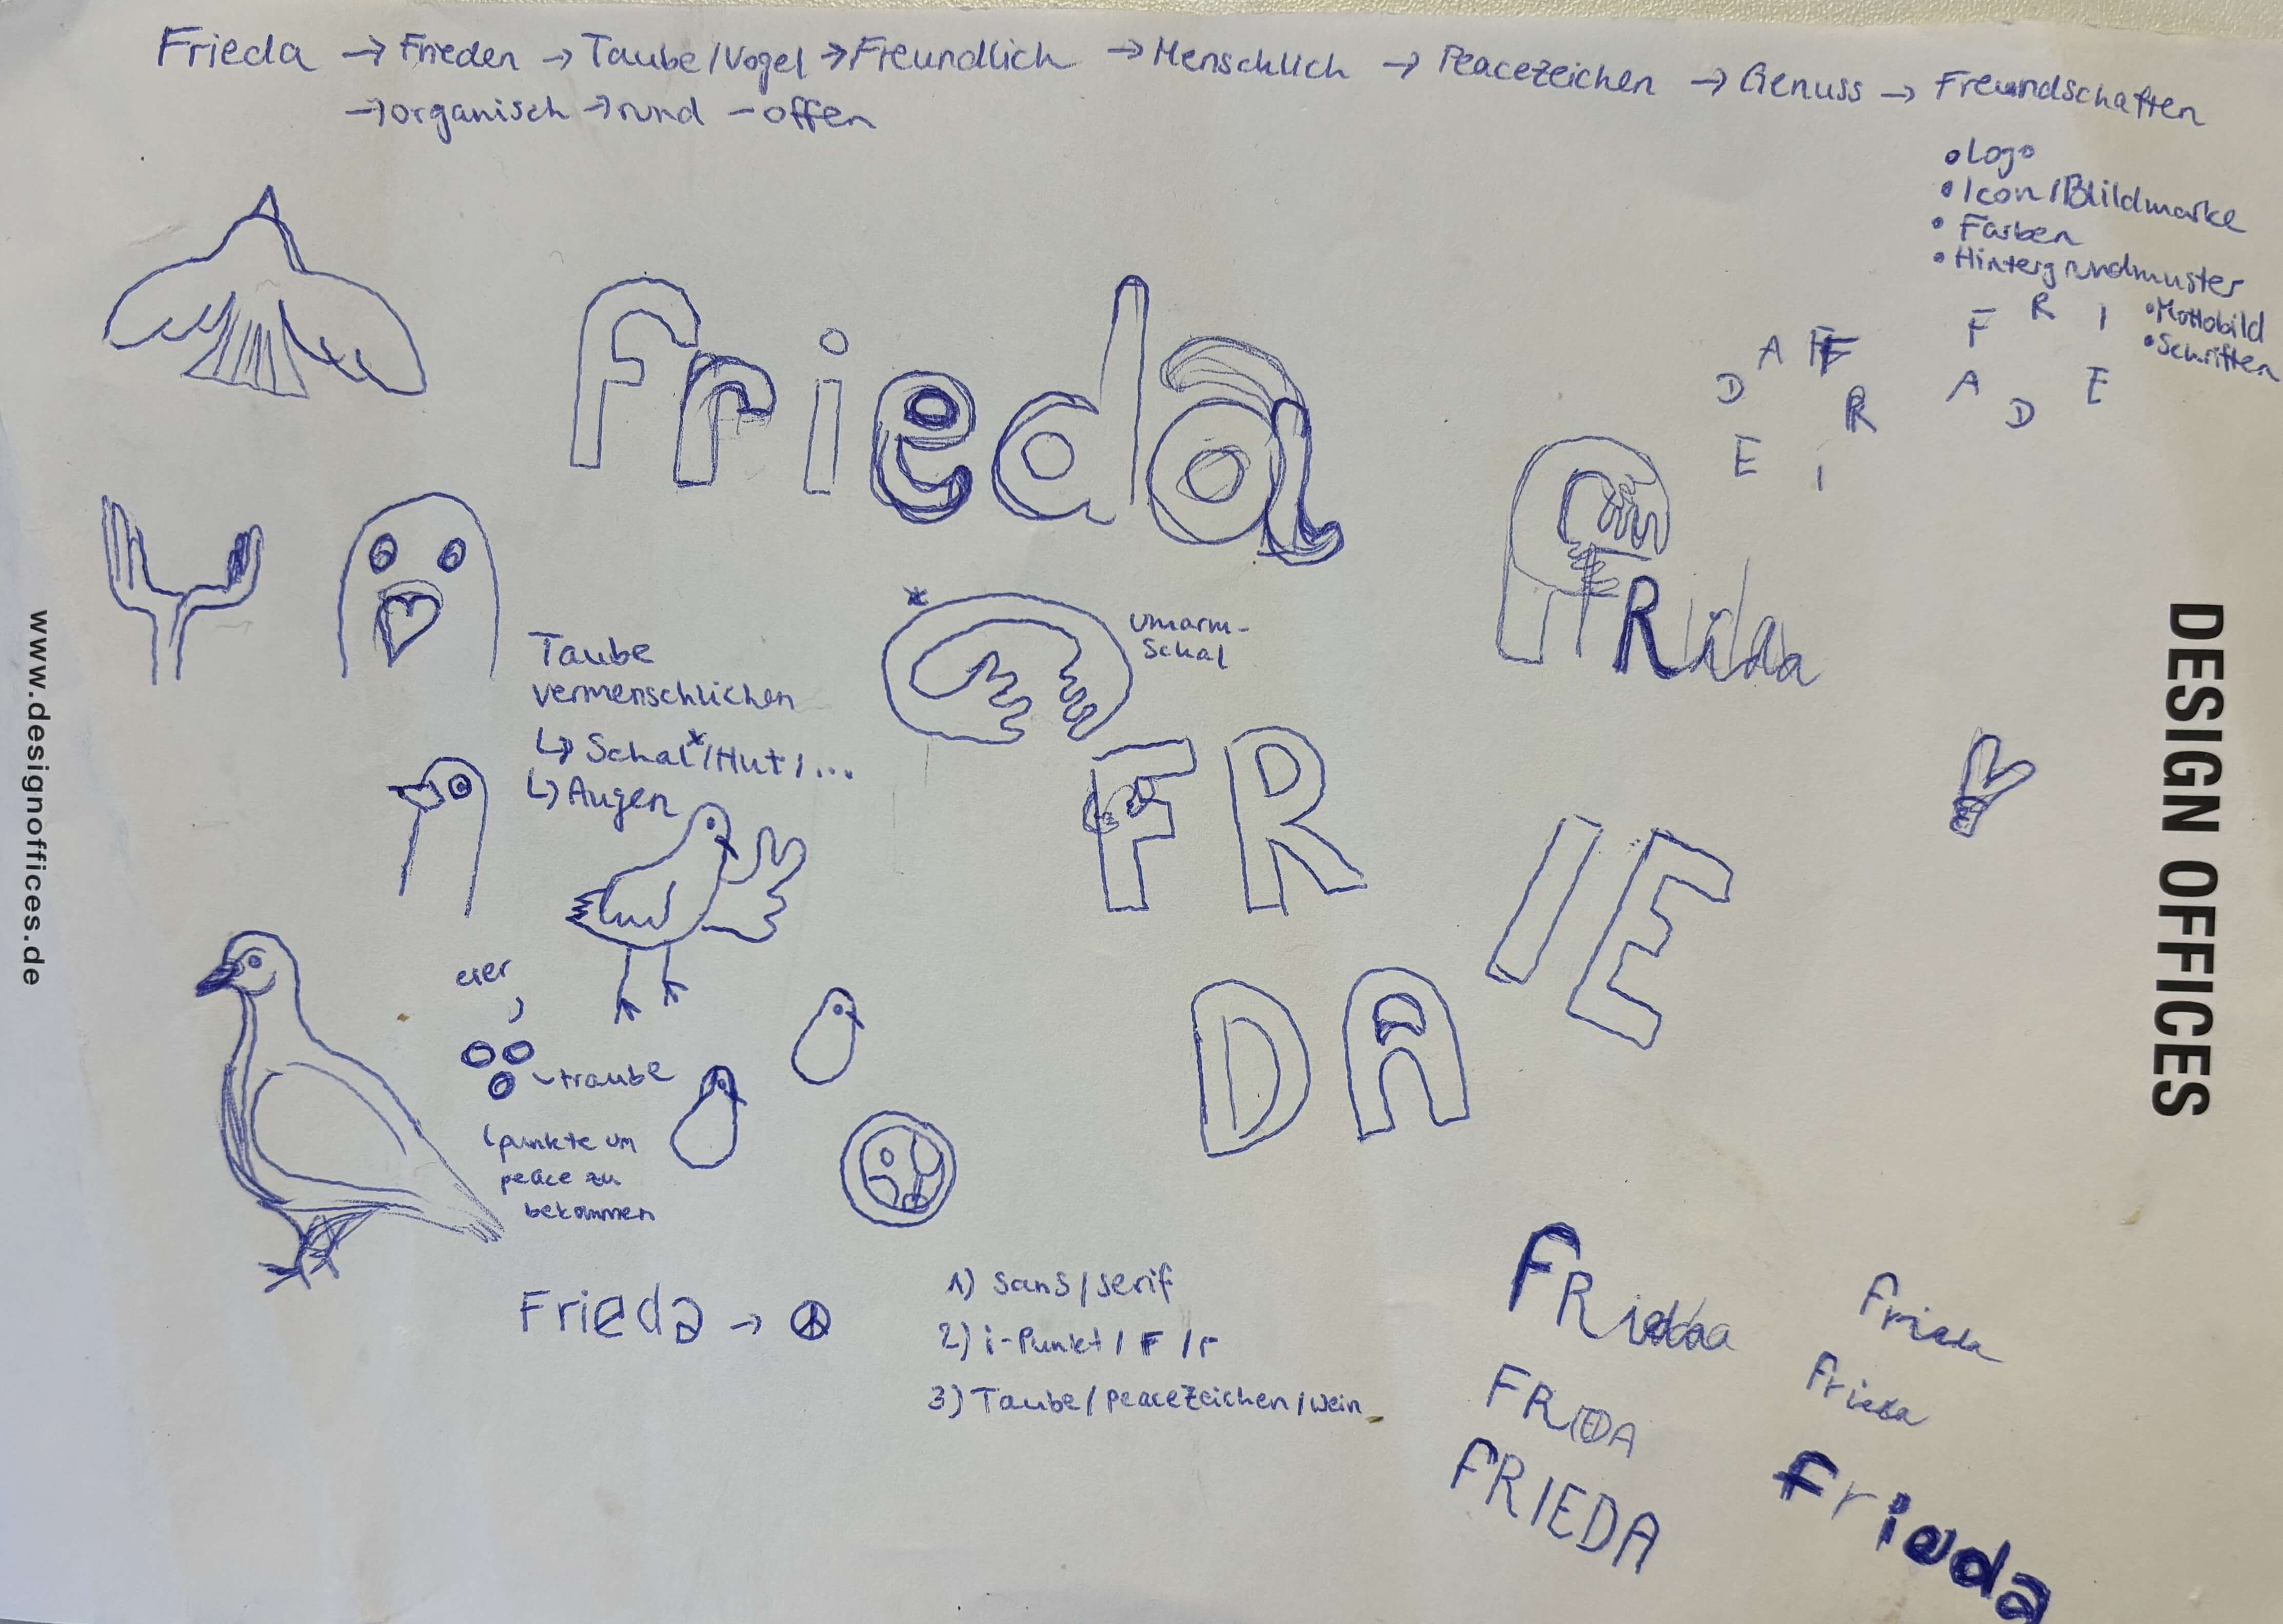 Frieda → Frieden → Taube/Vogel → Freundlich → Menschlich → Peacezeichen → Genuss → Freundschaften
→ organisch → rund – offen
• Logo
• Icon/Bildmarke
• Farben
• Hintergrundmuster
• Mottobild
• Schriften
A F
D R
E I
F R I
A D E
frieda
Umarm-
Schal
Taube
vermenschlichen
↳ Schal*/Hut/...
↳ Augen
FRieda
FR
IE
DA
eier
traube
punkte um
peace zu
bekommen
Frieda →
1) Sans/Serif
2) i-Punkt/F/r
3) Taube/Peacezeichen/Wein
FRieda
Frieda
FRIEDA
frieda
FRIEDA
frieda
www.designoffices.de
DESIGN OFFICES